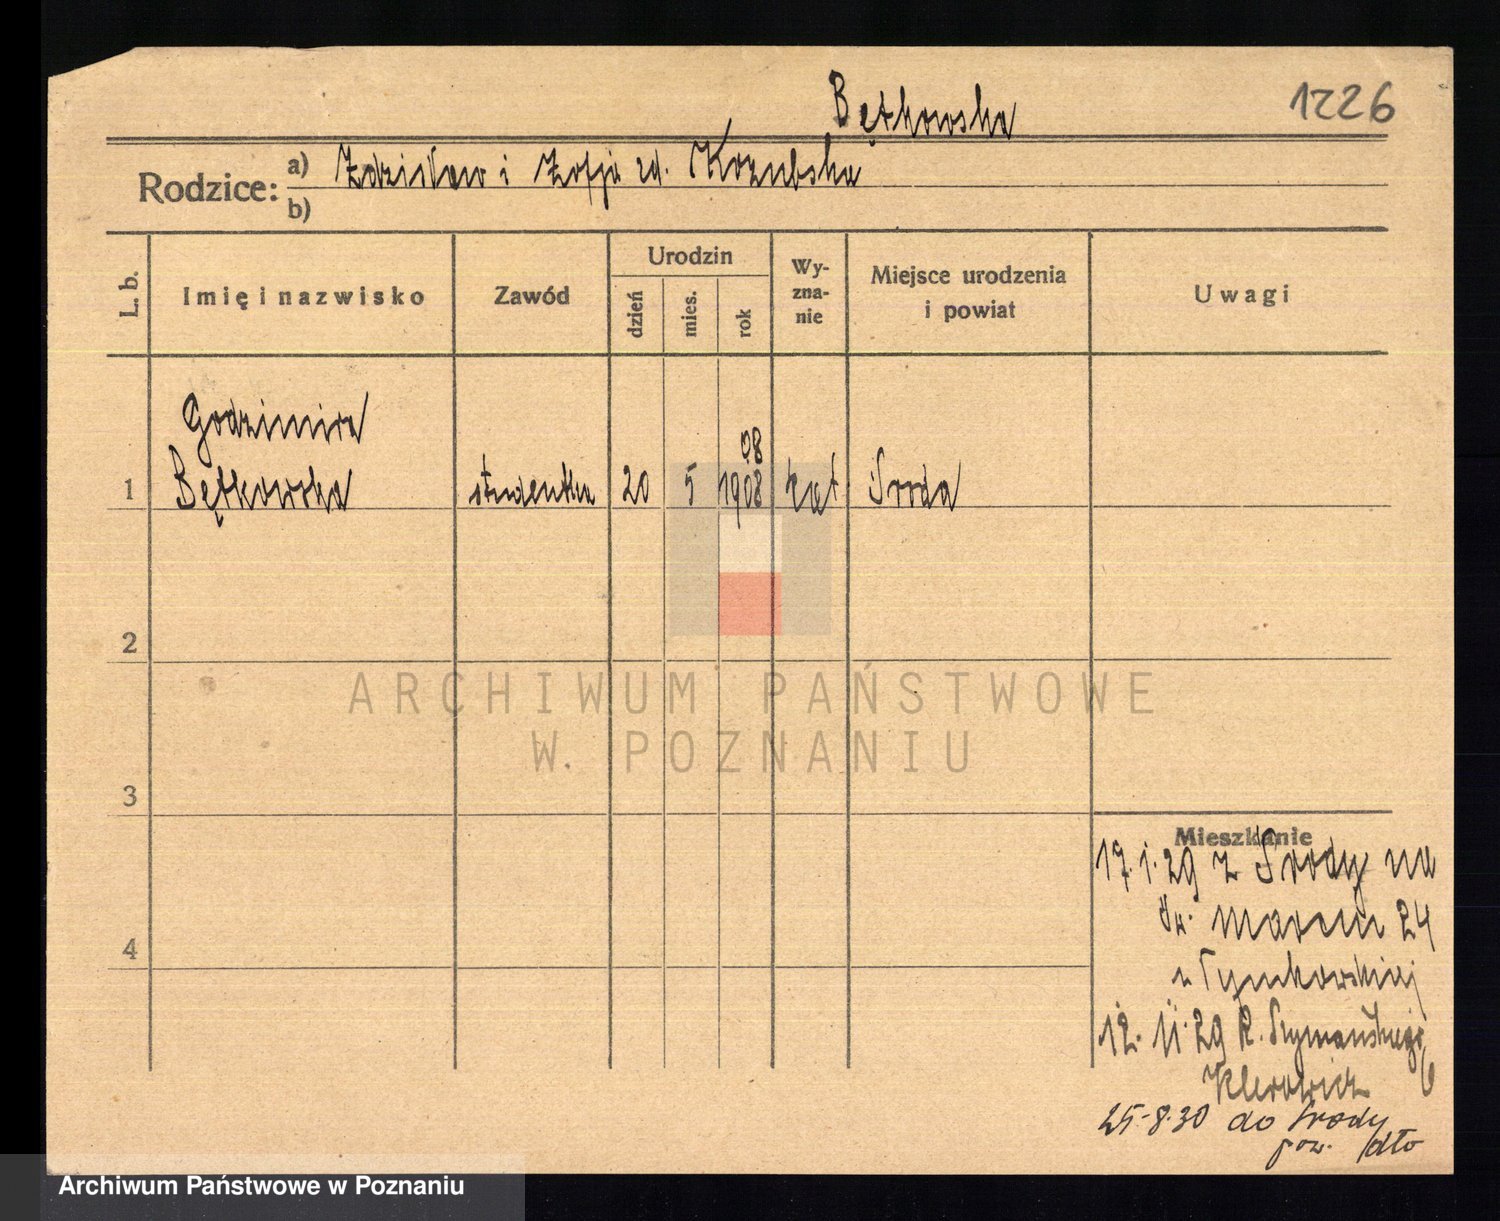 Bętkowska
1226
Rodzice:
a) Zdzisław i Zofja zd. Kozubska
b)
L. b.
Imię i nazwisko
Zawód
Urodzin
dzień
mies.
rok
Wy-
zna-
nie
Miejsce urodzenia
i powiat
Uwagi
Godzimira
08
1 Bętkowska studentka 20 5 1908 kat Środa
2
ARCHIWUM PAŃSTWOWE
W. POZNANIU
3
Mieszkanie
17.1.29 z Środy na
św. Marcin 24
4
u Tymkowskiej
12. 11. 29 R. Szymańskiego 6
25.8.30 do Środy
pow. /dło
Archiwum Państwowe w Poznaniu